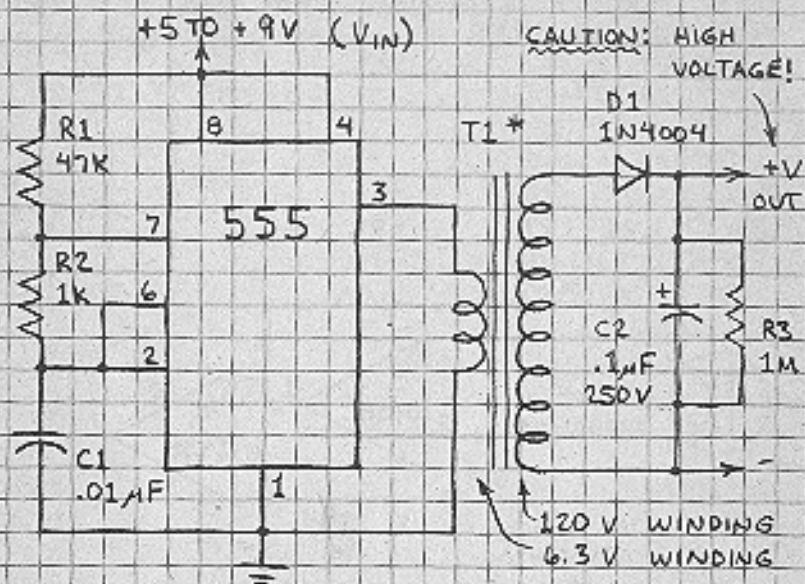 +5 TO + 9V (VIN)
CAUTION: HIGH
VOLTAGE!
R1
47K
8
4
T1 *
D1
1N4004
+V
OUT
3
7
555
R2
1K
6
2
+
C2
.1µF
250V
R3
1M
C1
.01µF
1
-
120 V WINDING
6.3 V WINDING